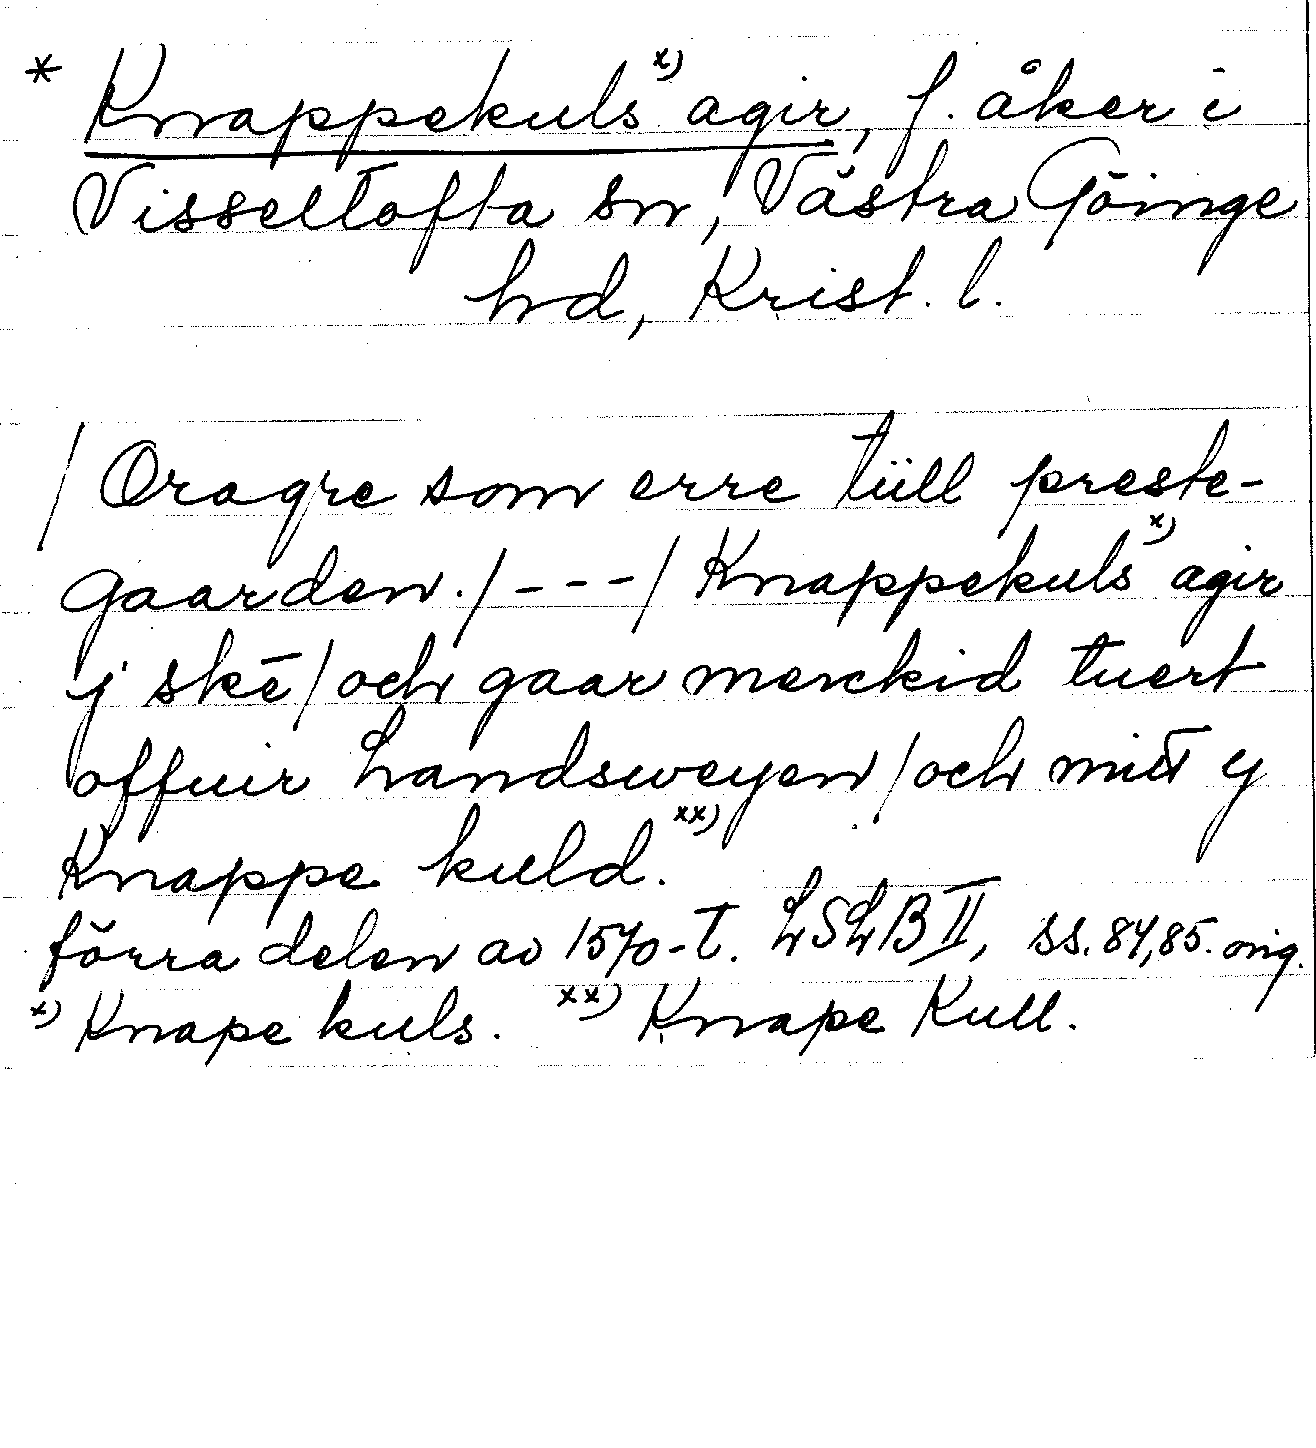 * Knappekuls x) agir, f. åker i
Visseltofta sn, Västra Göinge
hd, Krist. l.
/ Oragre som erre tüll preste-
gaarden. / - - - / Knappekuls x) agir
j skē / och gaar merckid tuert
offuir Landsweyen / och mitt y
Knappe kuld. xx)
förra delen av 1570-t. LSLB II, ss. 84, 85. orig.
x) Knape kuls. xx) Knape Kull.